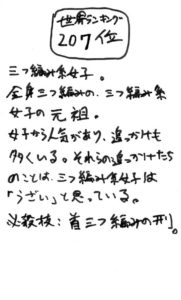 世界ランキング
207位
三つ編み系女子。
全身三つ編みの、三つ編み系
女子の元祖。
女子から人気があり、追っかけも
多くいる。それらの追っかけたち
のことは、三つ編み系女子は
「うざい」と思っている。
必殺技：首三つ編みの刑。